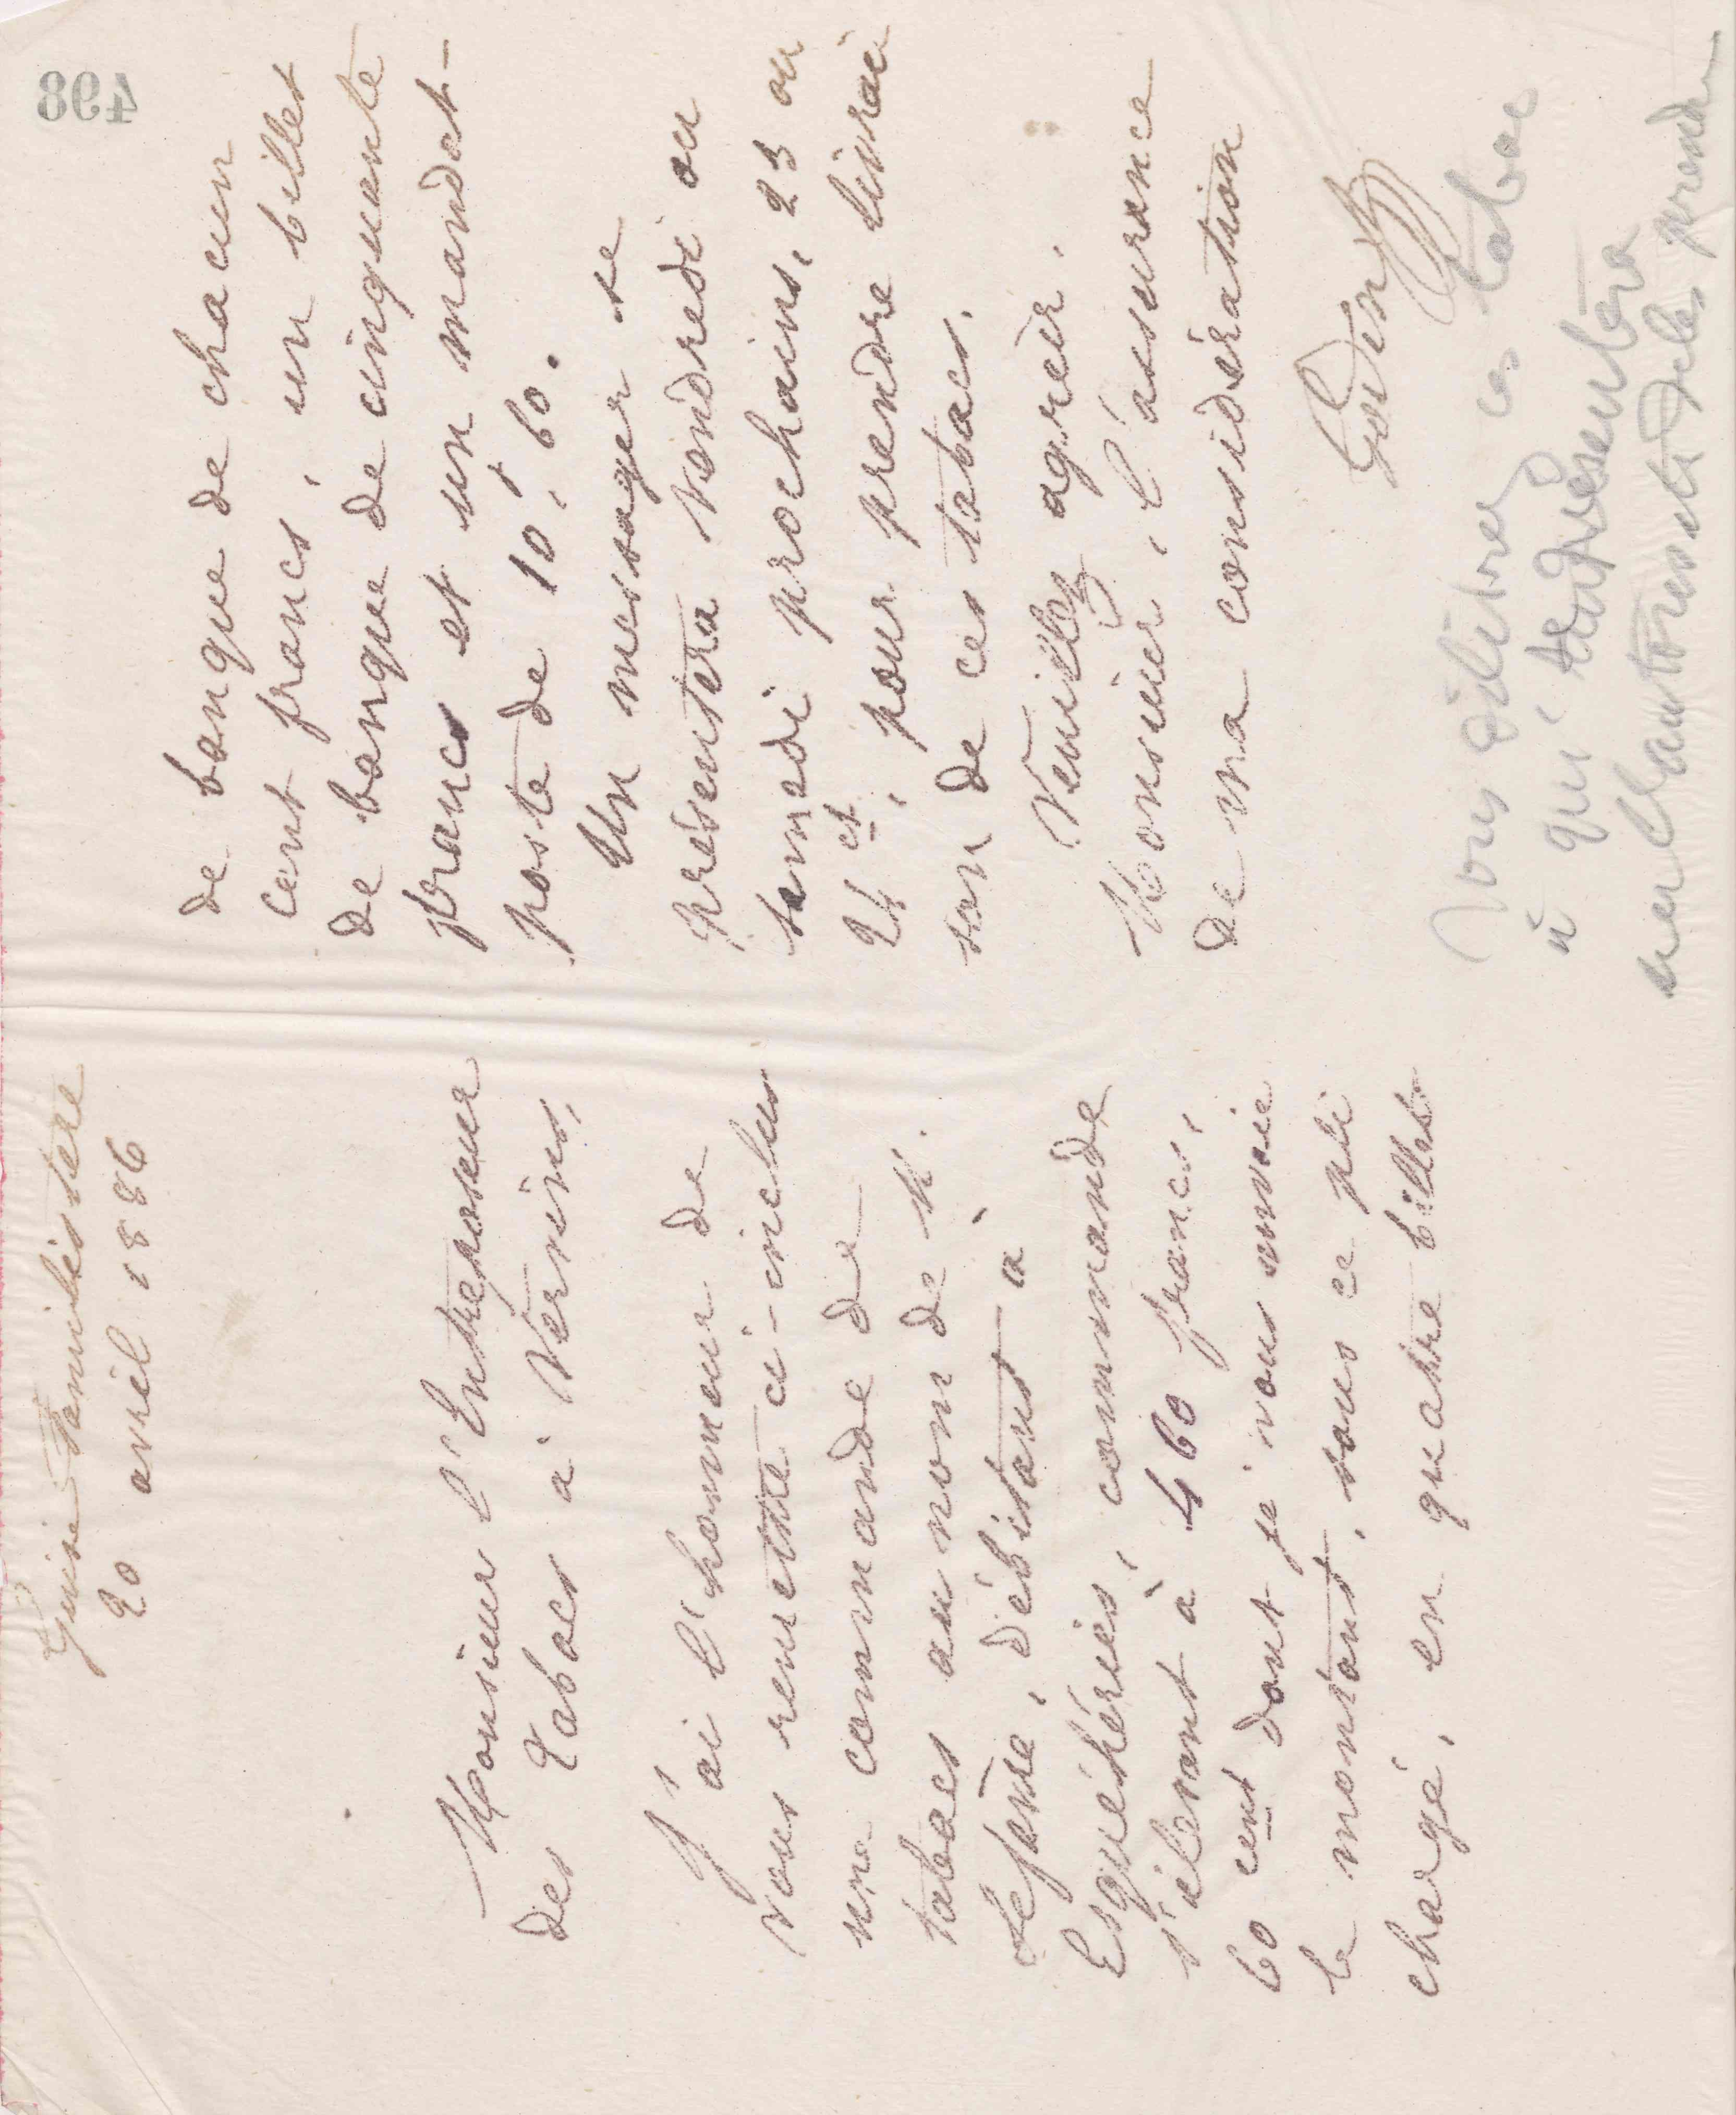 Guise Familistère
20 avril 1886
Monsieur l'Entreposeur
des Tabacs à Vervins,
J'ai l'honneur de
vous remettre ci-inclus
ma commande de
tabacs au nom de M.
Lefèvre, débitant à
Esquéhéries, commande
s'élevant à 460 francs,
60 cent dont je vous envoie
le montant, sous ce pli
chargé, en quatre billets
498
de banque de chacun
cent francs, un billet
de banque de cinquante
francs et un mandat-
poste de 10f, 60.
Un messager se
présentera vendredi ou
samedi prochains, 23 ou
24 ct, pour prendre livrai
son de ces tabacs.
Veuillez agréer,
Monsieur, l'assurance
de ma considération
Godin
Vous délivrez ces tabac
à qui présentera
l'autorisation de les prendre